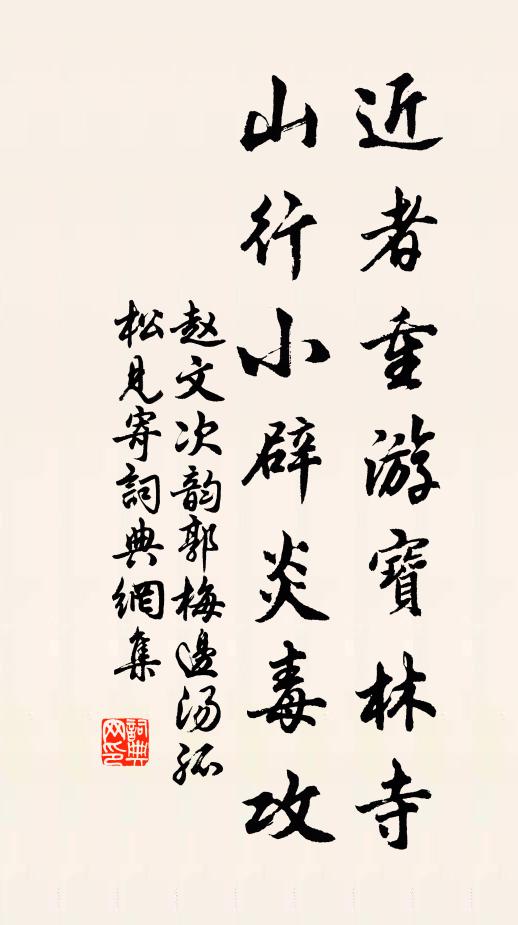 近者重游寶林寺
山行小辟炎毒攻
赵文次韵郭梅邊汤孤
松見寄詞典網集
詞典網印